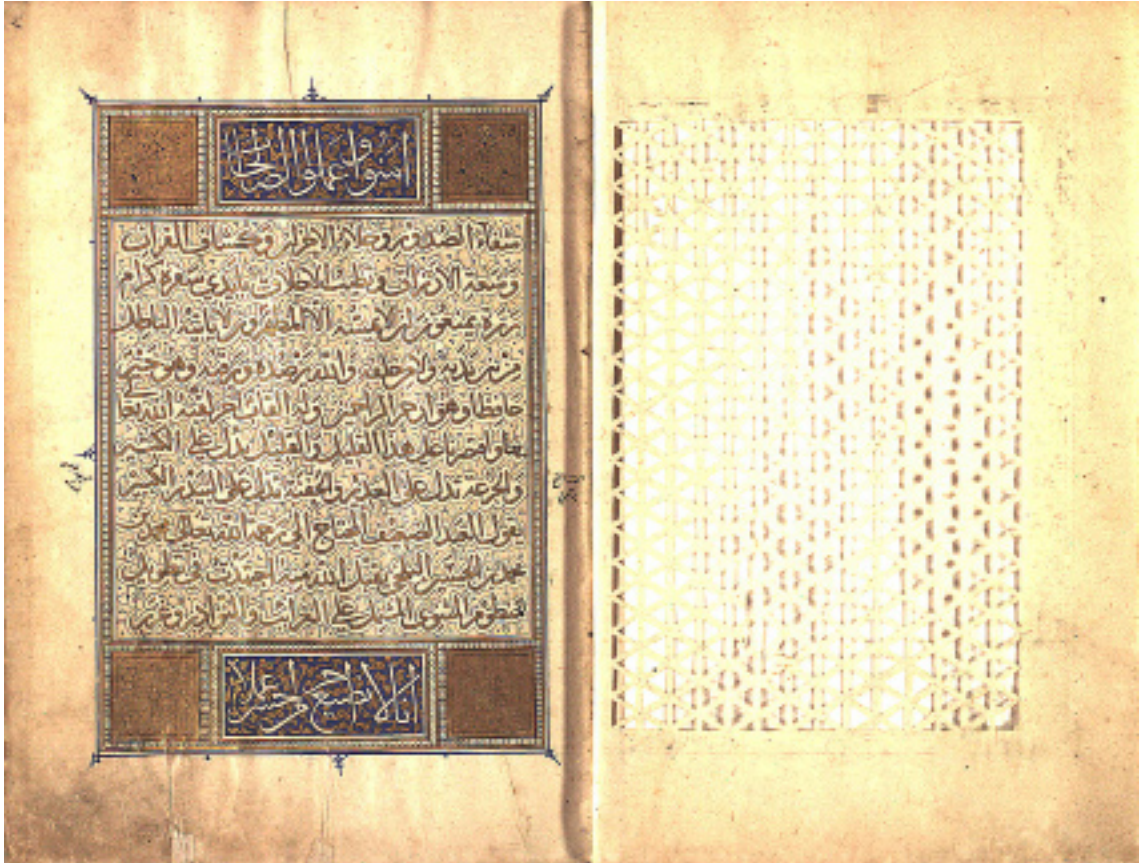 امنوا وعملوا الصالحات
شفاء الصدور وجلاء الاحزان وكشاف القران
وسعة الارزاق وتطييب الاخلاق بايدي سفرة كرام
بررة يمنعون بان لا يمسه الا المطهرون لا ياتيه الباطل
من بين يديه ولا من خلفه والله يرصده ويرقبه وهو خير
حافظا وهو ارحم الراحمين وله القاب اخر لقبه الله تعا
بها واقتصرنا على هذا القليل والقليل يدل على الكثير
والجرعة تدل على الغدير والحفنة تدل على البيدر الكبير
يقول العبد الضعيف المحتاج الى رحمة الله تعالى محمد بن
محمد بن الحسين البلخي تقبل الله منه اجتهدت في تطويل
المنظوم المثنوي المشتمل على الغرايب والنوادر وغرر
انا لا نضيع اجر من احسن عملا